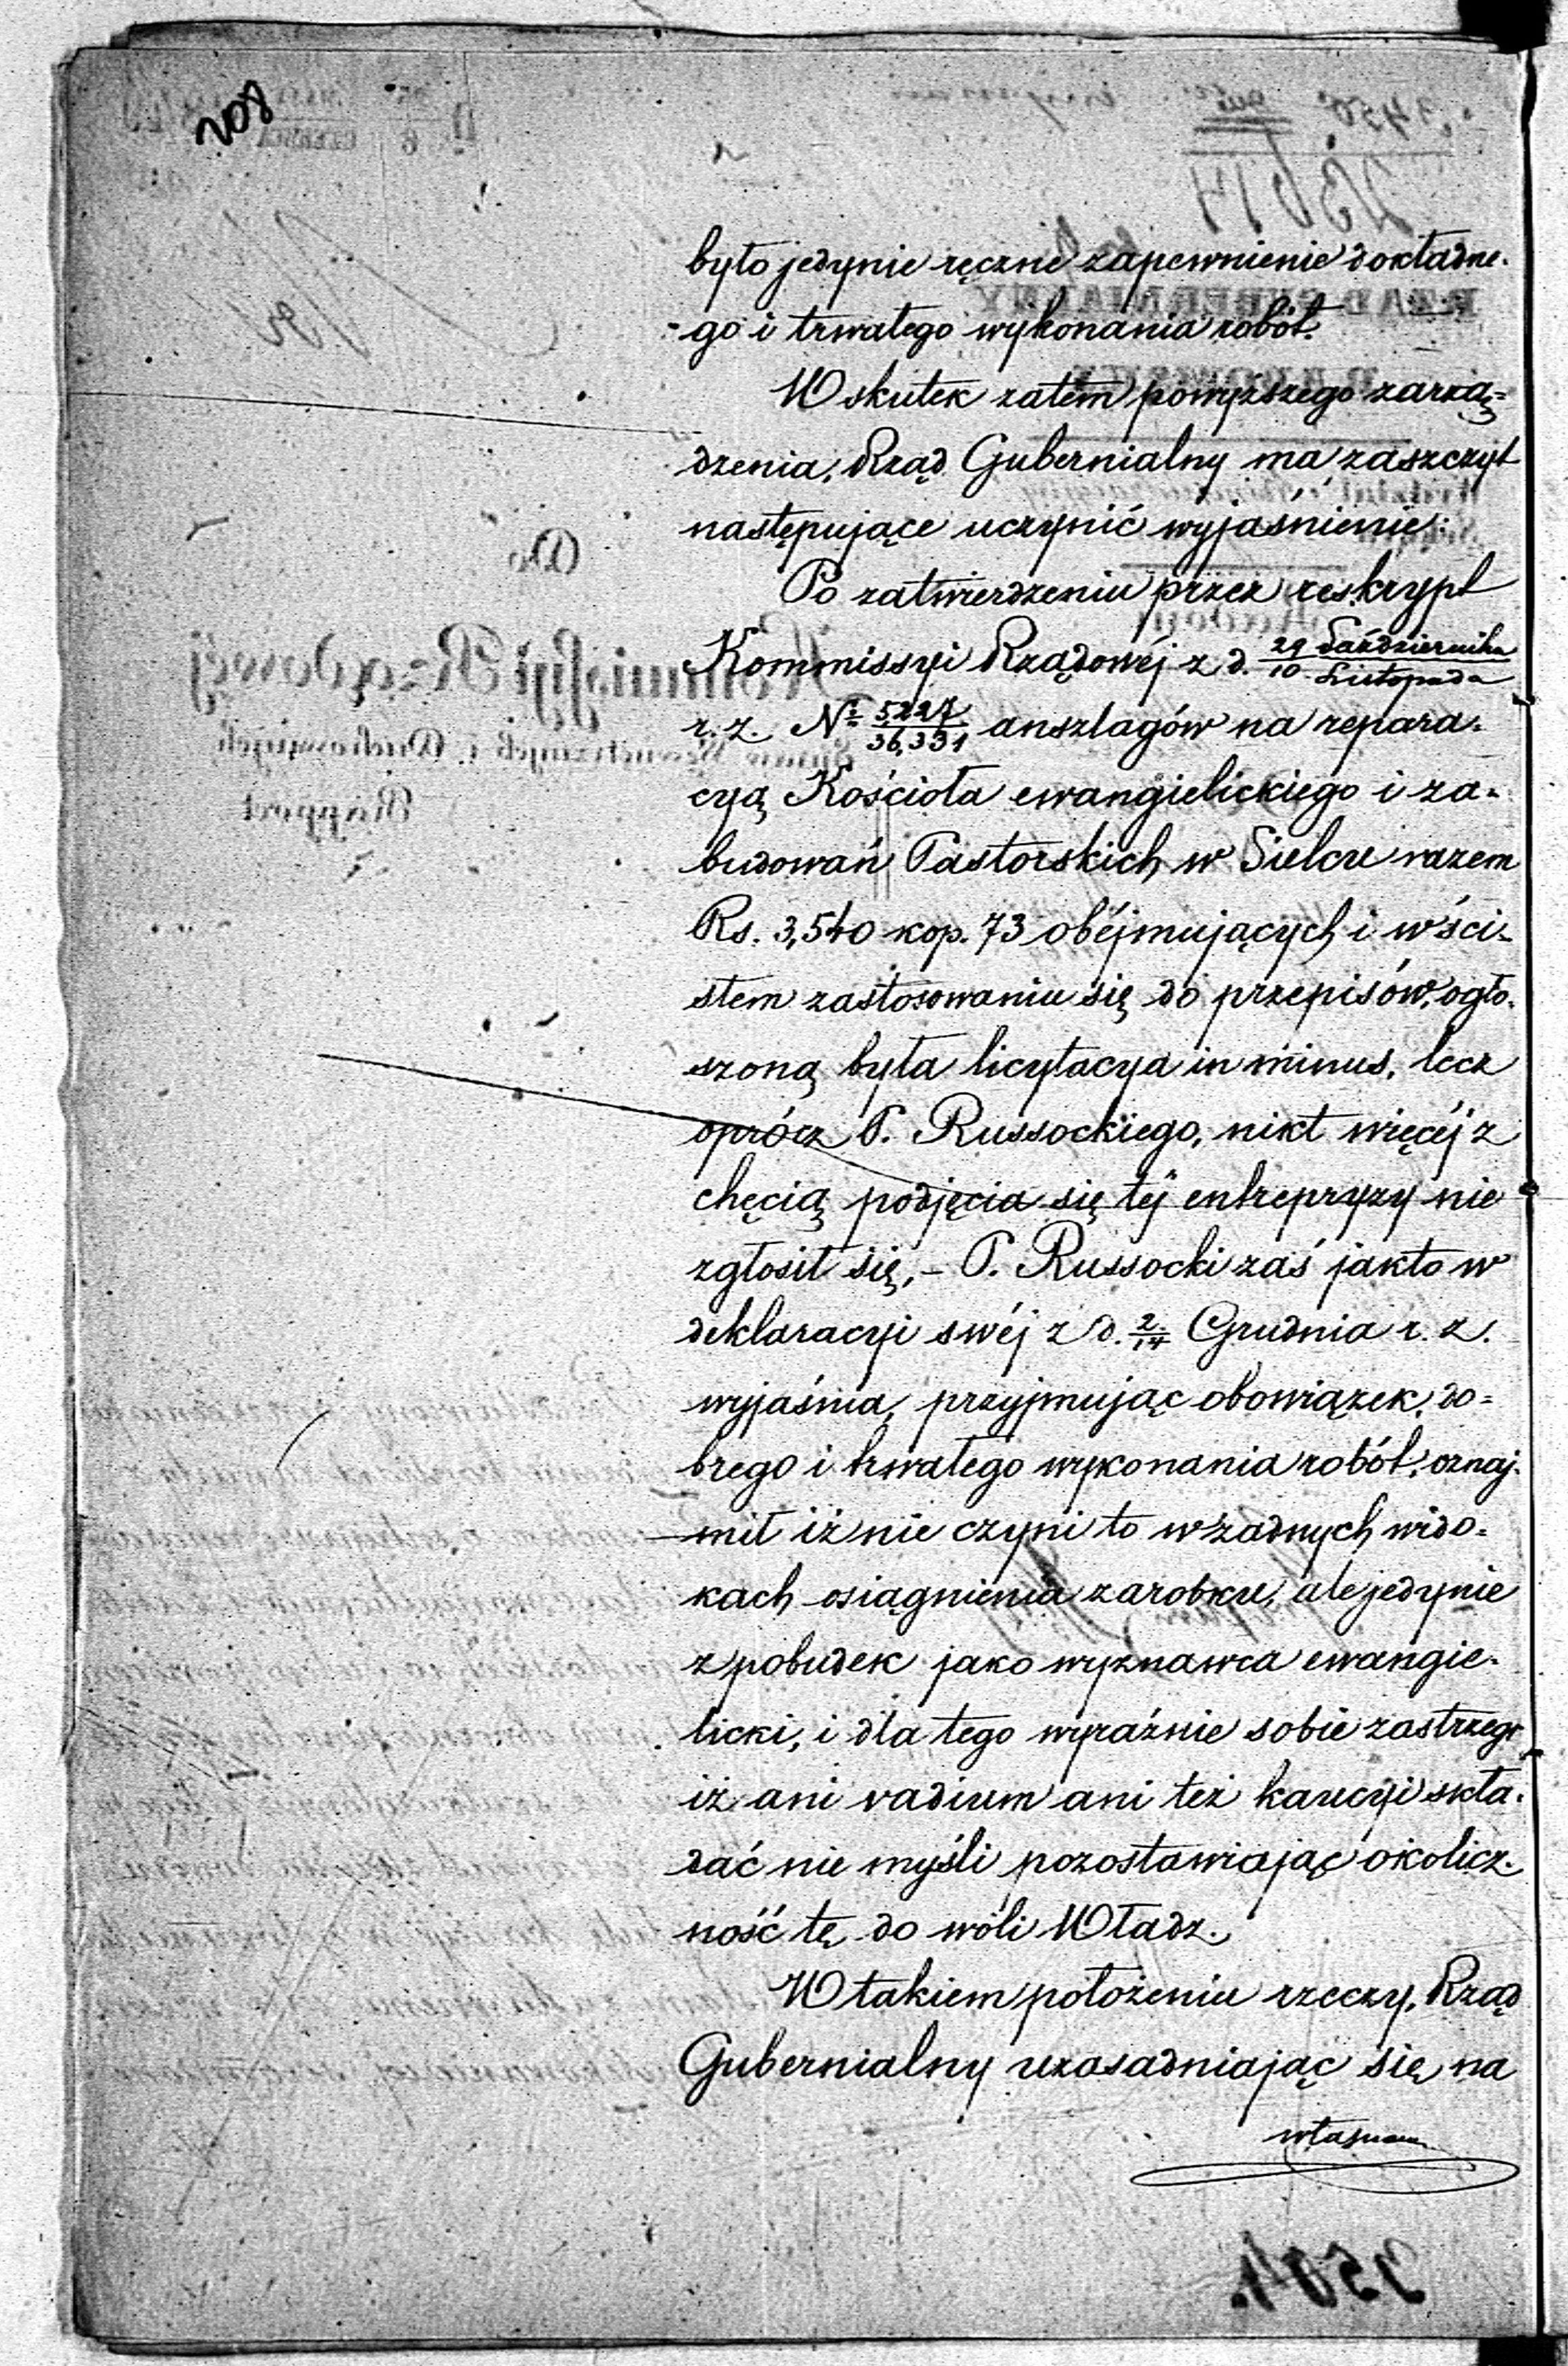 208
było jedynie ręczne zapewnienie dokładne-
-go i trwałego wykonania robót.
W skutek zatem powyższego zarzą=
dzenia, Rząd Gubernialny ma zaszczyt
następujące uczynić wyjaśnienie:
Po zatwierdzeniu przez reskrypt
Kommissyi Rządowéj z d. 29 Października / 10 Listopada
r. z. N° 5227/36,331 anszlagów na repara-
cyą Kościoła ewangielickiego i za-
budowań Pastorskich w Sielcu razem
Rs. 3,540 kop. 73 obéjmujących i w ści-
słem zastosowaniu się do przepisów, ogło-
szoną była licytacya in minus, lecz
oprócz P. Russockiego, nikt więcéj z
chęcią podjęcia się téj entrepryzy nie
zgłosił się, – P. Russocki zaś jak to w
deklaracyi swéj z d. 2/14 Grudnia r. z.
wyjaśnia, przyjmując obowiązek, do-
brego i trwałego wykonania robót, oznaj-
mił iż nie czyni to w żadnych wido-
kach osiągnienia zarobku, ale jedynie
z pobudek jako wyznawca ewangie-
licki, i dla tego wyraźnie sobie zastrzegł
iż ani vadium ani też kaucyi skła-
dać nie myśli pozostawiając okolicz-
ność tę do woli Władz.
W takiem położeniu rzeczy, Rząd
Gubernialny uzasadniając się na